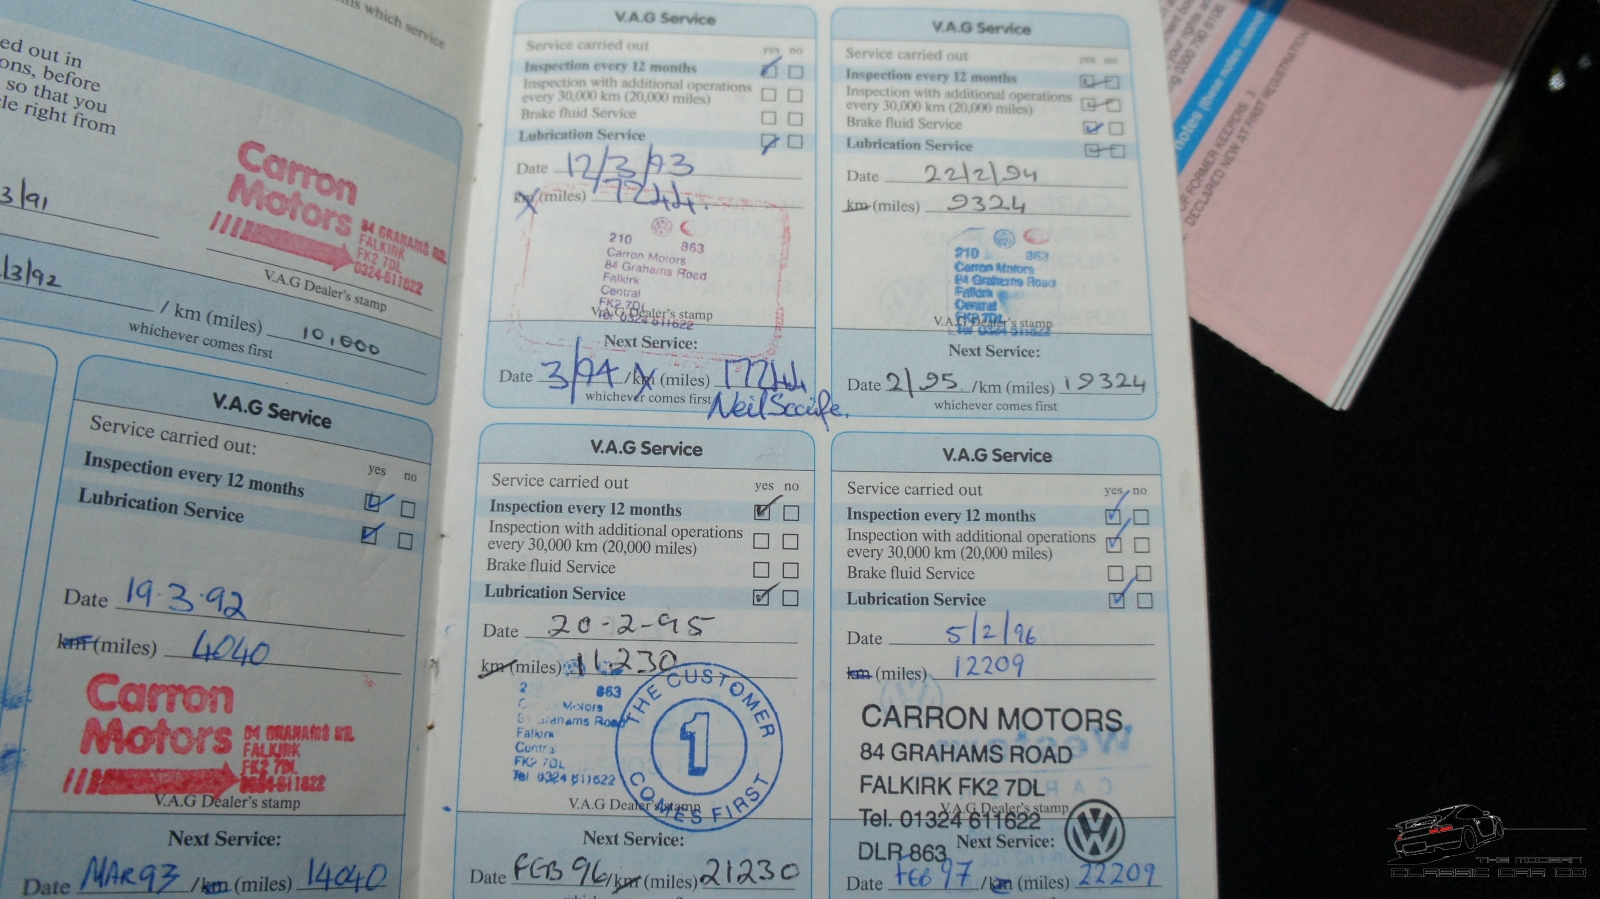 which service
ed out in
ons, before
so that you
le right from
3/91
Carron
Motors
84 GRAHAMS RD.
FALKIRK
FK2 7DL
0324-611622
V.A.G Dealer's stamp
/3/92 / km (miles) 10,000
whichever comes first
V.A.G Service
Service carried out:
yes no
Inspection every 12 months
Lubrication Service
Date 19.3.92
km (miles) 4040
Carron
Motors
84 GRAHAMS RD.
FALKIRK
FK2 7DL
0324-611622
V.A.G Dealer's stamp
Next Service:
Date MAR 93 /km (miles) 14040
V.A.G Service
Service carried out yes no
Inspection every 12 months
Inspection with additional operations
every 30,000 km (20,000 miles)
Brake fluid Service
Lubrication Service
Date 12/3/93
km (miles) 7244.
210 863
Carron Motors
84 Grahams Road
Falkirk
Central
FK2 7DL
Tel 0324 611622
V.A.G Dealer's stamp
Next Service:
Date 3/94 /km (miles) 17244
whichever comes first
V.A.G Service
Service carried out yes no
Inspection every 12 months
Inspection with additional operations
every 30,000 km (20,000 miles)
Brake fluid Service
Lubrication Service
Date 22/2/94
km (miles) 9324
210 863
Carron Motors
84 Grahams Road
Falkirk
Central
FK2 7DL
Tel 0324 611622
V.A.G Dealer's stamp
Next Service:
Date 2/95 /km (miles) 19324
whichever comes first
V.A.G Service
Service carried out yes no
Inspection every 12 months
Inspection with additional operations
every 30,000 km (20,000 miles)
Brake fluid Service
Lubrication Service
Date 20-2-95
km (miles) 11.230
2 863
Motors
Grahams Road
Falkirk
Central
FK2 7DL
Tel 0324 611622
THE CUSTOMER
1
COMES FIRST
V.A.G Dealer's stamp
Next Service:
Date FEB 96 /km (miles) 21230
V.A.G Service
Service carried out yes no
Inspection every 12 months
Inspection with additional operations
every 30,000 km (20,000 miles)
Brake fluid Service
Lubrication Service
Date 5/2/96
km (miles) 12209
CARRON MOTORS
84 GRAHAMS ROAD
FALKIRK FK2 7DL
V.A.G Dealer's stamp
Tel. 01324 611622
DLR 863 Next Service:
Date FEB 97 /km (miles) 22209
notes (these notes
OF FORMER KEEPERS
DECLARED NEW AT FIRST REGISTRATION
THE MODERN
CLASSIC CAR CO